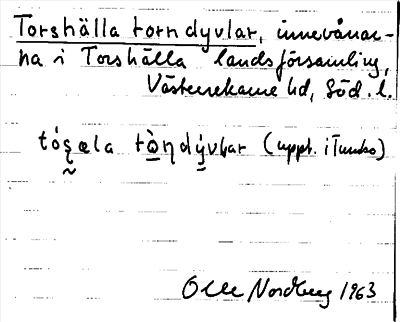 Torshälla torndyvlar, innevånar-
na i Torshälla landsförsamling,
Västerrekarne hd, Söd. l.
tóșæla tòṇdývḷar (uppt. i Tumbo)
Olle Nordberg 1963